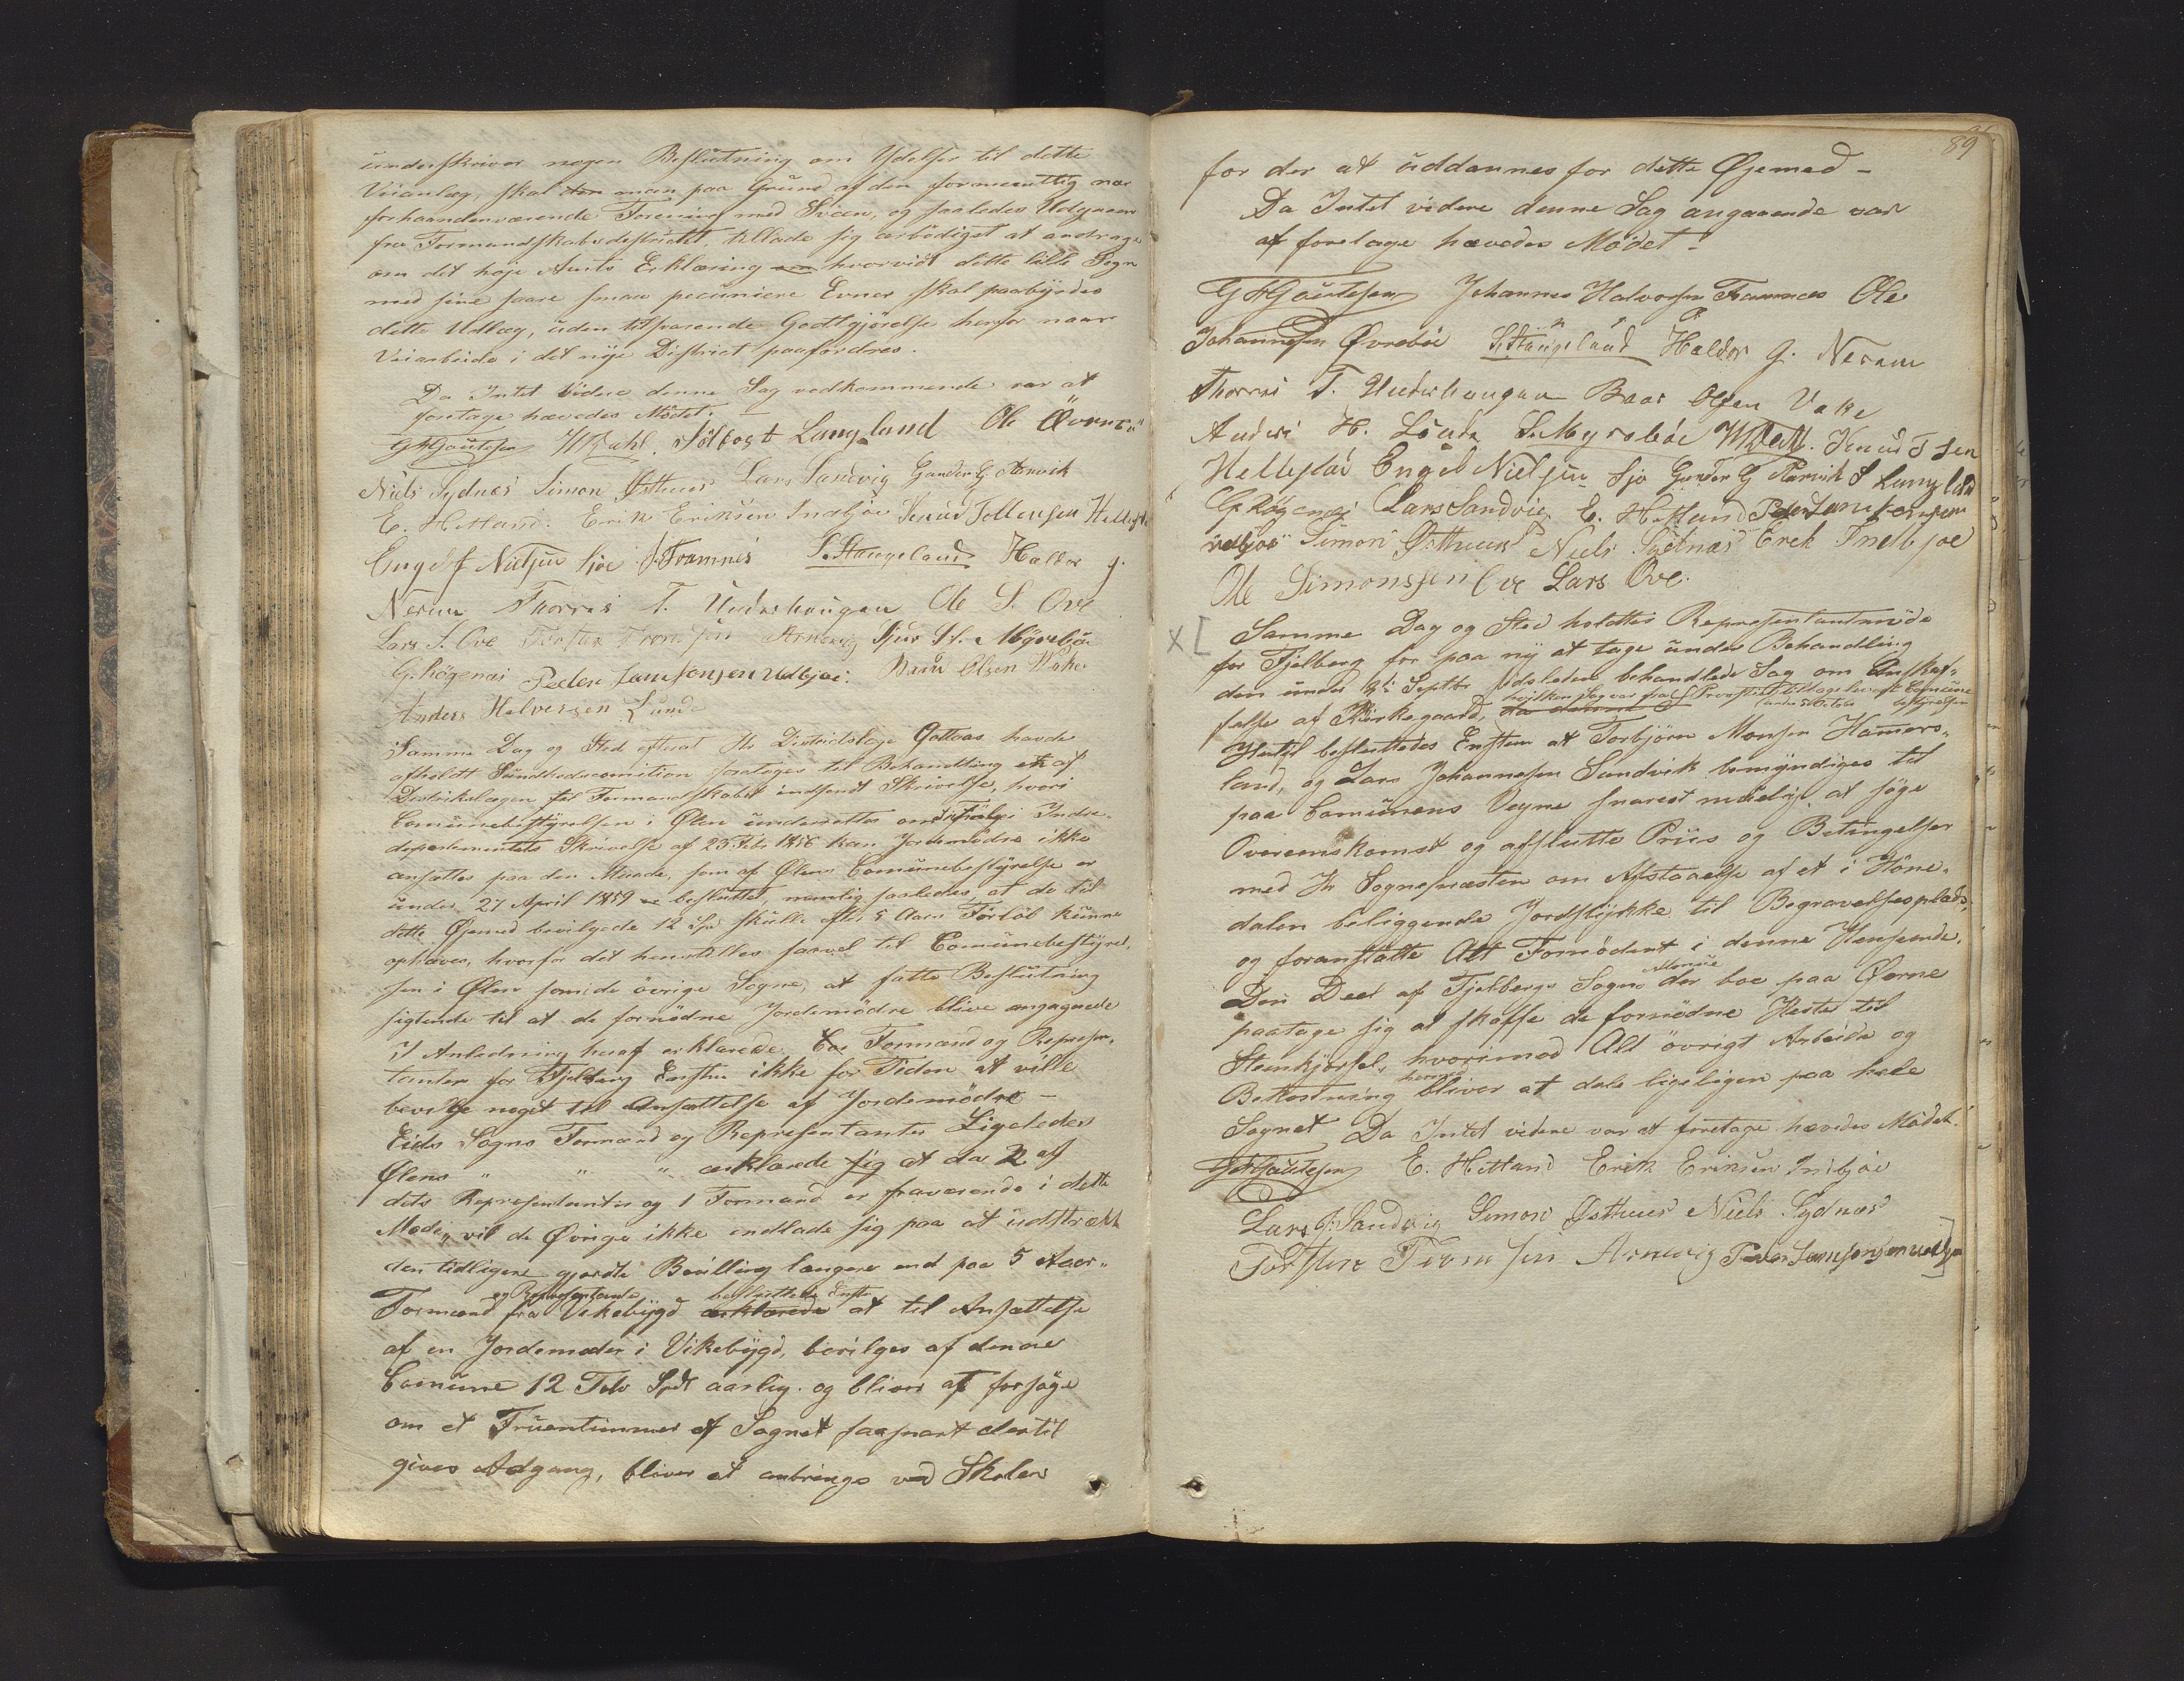 underskriver nogen Beslutning om Ydelser til dette
Veianlæg, skal den man paa Grund af den formeentlig nær
forhaandenværende Forening med Sveen, og saaledes Udgaaen
fra Formandskabsdestrictet, tillade sig ærbödigst at andrage
om det höje Amts Erklæring om hvorvidt dette lille Sogn
med sine saare smaa pecuniere Evner skal paabyrdes
dette Udlæg, uden tilsvarende Godtgjörelse herfor naar
Veiarbeide i det nye District paafordres.
Da Intet videre denne Sag vedkommende var at
foretage hævedes Mödet.
G Gautesen Langeland Ole
Niels Sydnes Simon Østhuus Lars Sandvig Gunder G. Arnvik
E. Hetland. Erik Eriksen Inebjöe Knud Tollevsen
Engel Nielsen Sjöe J. Framnes S. Stangeland Haldor g.
Nerem Thorres T. Underhaugen Ole S. Ove
Lars S. Ove Torsten Arnevig Sjur H. Myrebö
G. Rögenes Peder Samsonsen Udbjoe. Olsen Vake
Anders Halvorsen Lunde
Samme Dag og Sted efterat Hr Districtslæge Gottaas havde
afholdt Sundhedscomition foretoges til Behandling en af
Distriktslægen til Formandskabet indsendt Skrivelse, hvori
Comünebestyrelsen i Ølen underrettes om ifölge Indre-
departementets Skrivelse af 25 Febr 1856 kan Jordemödre ikke
ansættes paa den Maade, som af Ølens Comünebestyrelse er
under 27 April 1859 er besluttet, nemlig saaledes, at de til
dette Øjemed bevilgede 12 Spd skulle efter 5 Aars Forlöb kunne
ophæves, hvorfor det henstilles saavel til Comünebestyrel-
sen i Ølen som i de övrige Sogne, at fatte Beslutning
sigtende til at de fornödne Jordemödre blive engagerede
I Anledning heraf erklærede Formænd og Represen-
tanter for Fjelberg Enstem ikke for Tiden at ville
bevilge noget til Ansættelse af Jordemödre –
Eids Sogns Formænd og Representanter Ligeledes
Ølens " " " erklærede sig at da 2 af
dets Representanter og 1 Formand er fraværende i dette
Möde, vil de Øvrige ikke indlade sig paa at udstrække
den tidligere gjorde Bevilling længere end paa 5 Aar.
og Representante besluttede Enst
Formænd fra Vikebygd erklærede at til Ansættelse
af en Jordemoder i Vikebygd, bevilges af denne
Comüne 12 Tolv Spd aarlig. og bliver at forsöge
om et Fruentimmer af Sognet saasnart dertil
gives Adgang, bliver at anbringe ved Skolen
89
for der at uddannes for dette Øjemed –
Da Intet videre denne Sag angaaende var
at foretage hævedes Mödet –
G Gautesen Johannes Halvorsen Framnæs Ole
Johannesen Øvreböe S. Stangeland Haldor G. Nerem
Thorres T. Underhaugen Baar Olsen Vake
Anders H. Lunde S. Myreböe Knud T sen
Engel Nielsen Sjo Gunder G Arnvik S Langeland
G. Rögenes Lars Sandvig E. Hetland Peder Samsonsen
udbjoe Simon Østhuus Niels Sydnæs Erek Inebjoe
Ole Simonssen Ove Lars Ove.
X [ Samme Dag og Sted holdtes Representantmöde
for Fjelberg for paa ny at tage under Behandling
den under Septbr sidsleden behandlede Sag om Anskaf-
hvilken Sag var fra Provsti tilbagelevert Comüne
bestyrelsen
felse af Kirkegaard,
Hertil besluttedes Enstem at Torbjörn Monsen Hamers-
land, og Lars Johannesen Sandvik bemyndiges til
paa Comunens Vegne snarest mueligt at söge
Overeenskomst og afslutte Priis og Betingelser
med Hr Sognepræsten om Afstaaelse af et i Höne-
dalen beliggende Jordstykke til Begravelsesplads,
og foranstalte Alt Fornödent i denne Henseende.
Den Deel af Fjelbergs Sogns Almue der boe paa Øerne
paatage sig at skaffe de fornödne Heste til
Steenkjörsel, hvorimod Alt övrigt Arbeide og
Bekostning herved bliver at dele ligeligen paa hele
Sognet Da Intet videre var at foretage hævedes Mödet.
G Gautesen E. Hetland Erik Eriksen Inebjöe
Lars J. Sandvig Simon Østhuus Niels Sydnæs
Torsten Arnevig Peder Samsonsen udbjo ]